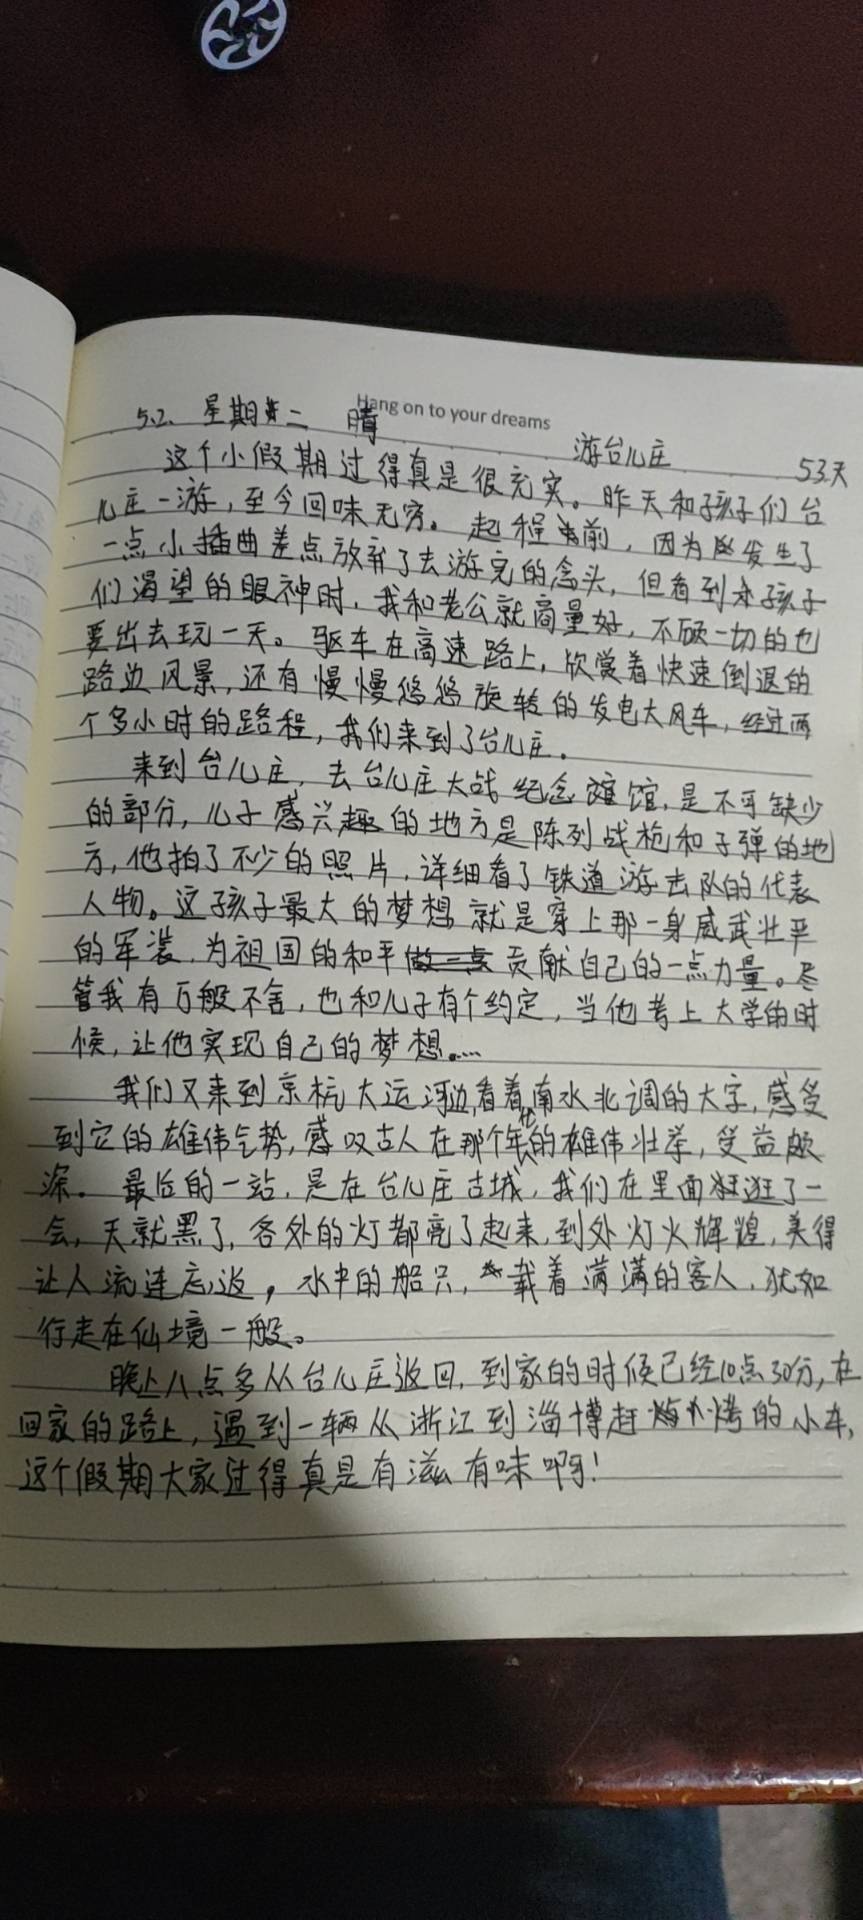 Hang on to your dreams
5.2. 星期二 晴 游台儿庄 53天
这个小假期过得真是很充实。昨天和孩子们台
儿庄一游，至今回味无穷。起程前，因为发生了
一点小插曲差点放弃了去游完的念头，但看到孩子
们渴望的眼神时，我和老公就商量好，不顾一切的也
要出去玩一天。驱车在高速路上，欣赏着快速倒退的
路边风景，还有慢慢悠悠旋转的发电大风车，经过两
个多小时的路程，我们来到了台儿庄。
来到台儿庄，去台儿庄大战纪念馆，是不可缺少
的部分，儿子感兴趣的地方是陈列战枪和子弹的地
方，他拍了不少的照片，详细看了铁道游击队的代表
人物。这孩子最大的梦想就是穿上那一身威武壮平
的军装，为祖国的和平贡献自己的一点力量。尽
管我有百般不舍，也和儿子有个约定，当他考上大学的时
候，让他实现自己的梦想。…
我们又来到京杭大运河边，看着南水北调的大字，感受
到它的雄伟气势，感叹古人在那个年代的雄伟壮举，受益颇
深。最后的一站，是在台儿庄古城，我们在里面逛了一
会，天就黑了，各处的灯都亮了起来，到处灯火辉煌，美得
让人流连忘返，水中的船只，载着满满的客人，犹如
行走在仙境一般。
晚上八点多从台儿庄返回，到家的时候已经10点30分，在
回家的路上，遇到一辆从浙江到淄博赶烤的小车，
这个假期大家过得真是有滋有味啊！